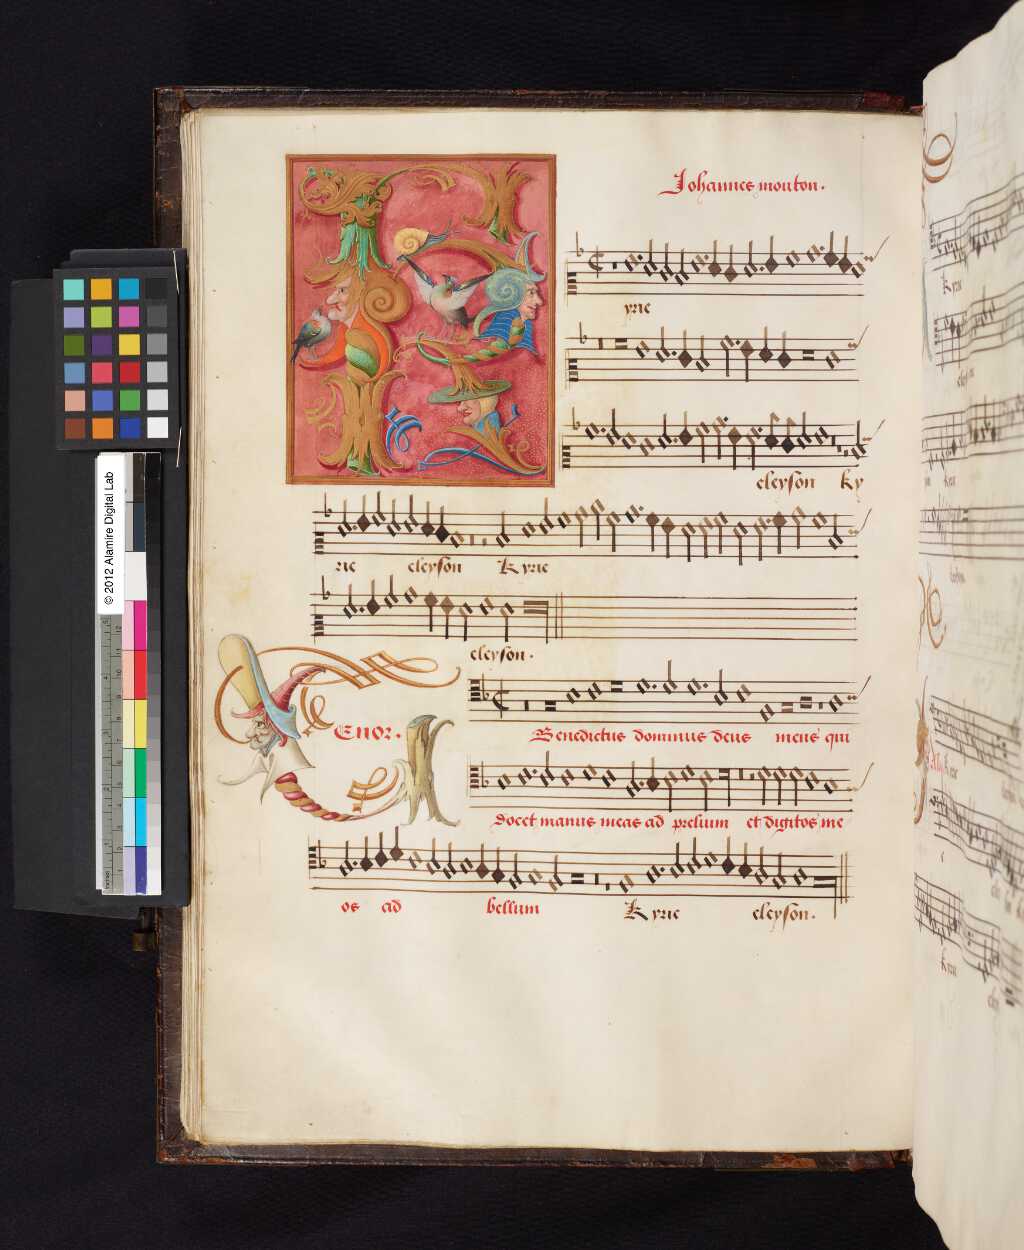 Johannes mouton.
K
yrie
eleyson Ky
rie eleyson Kyrie
eleyson.
Tenor.
Benedictus dominus deus meus qui
docet manus meas ad prelium et digitos me
os ad bellum Kyrie eleyson.
© 2012 Alamire Digital Lab
Kyrie